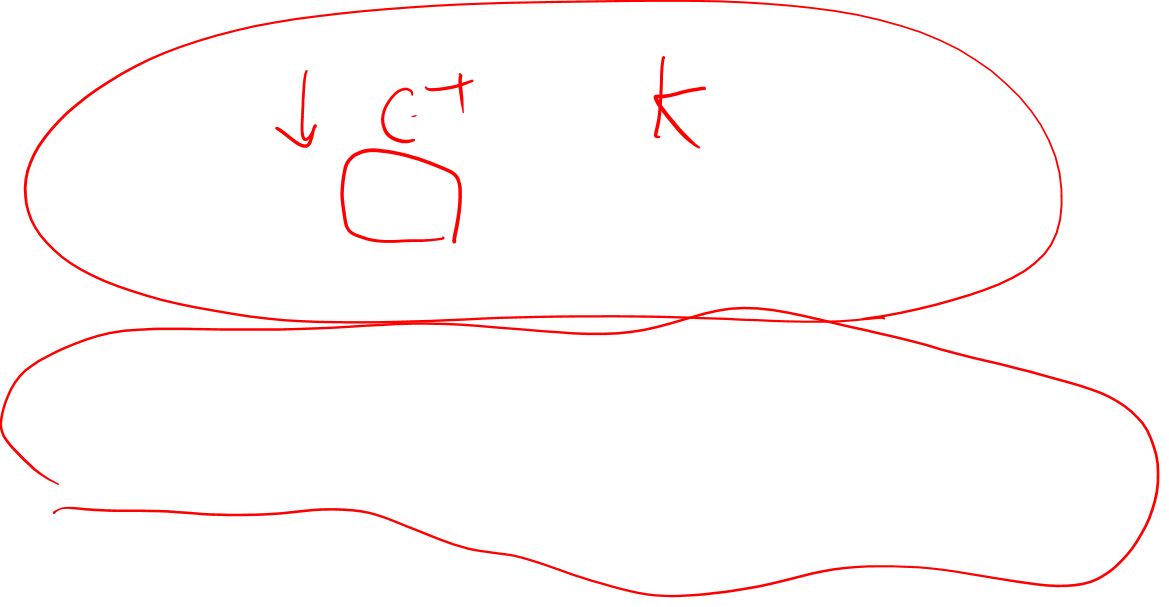 ↓ C+ K